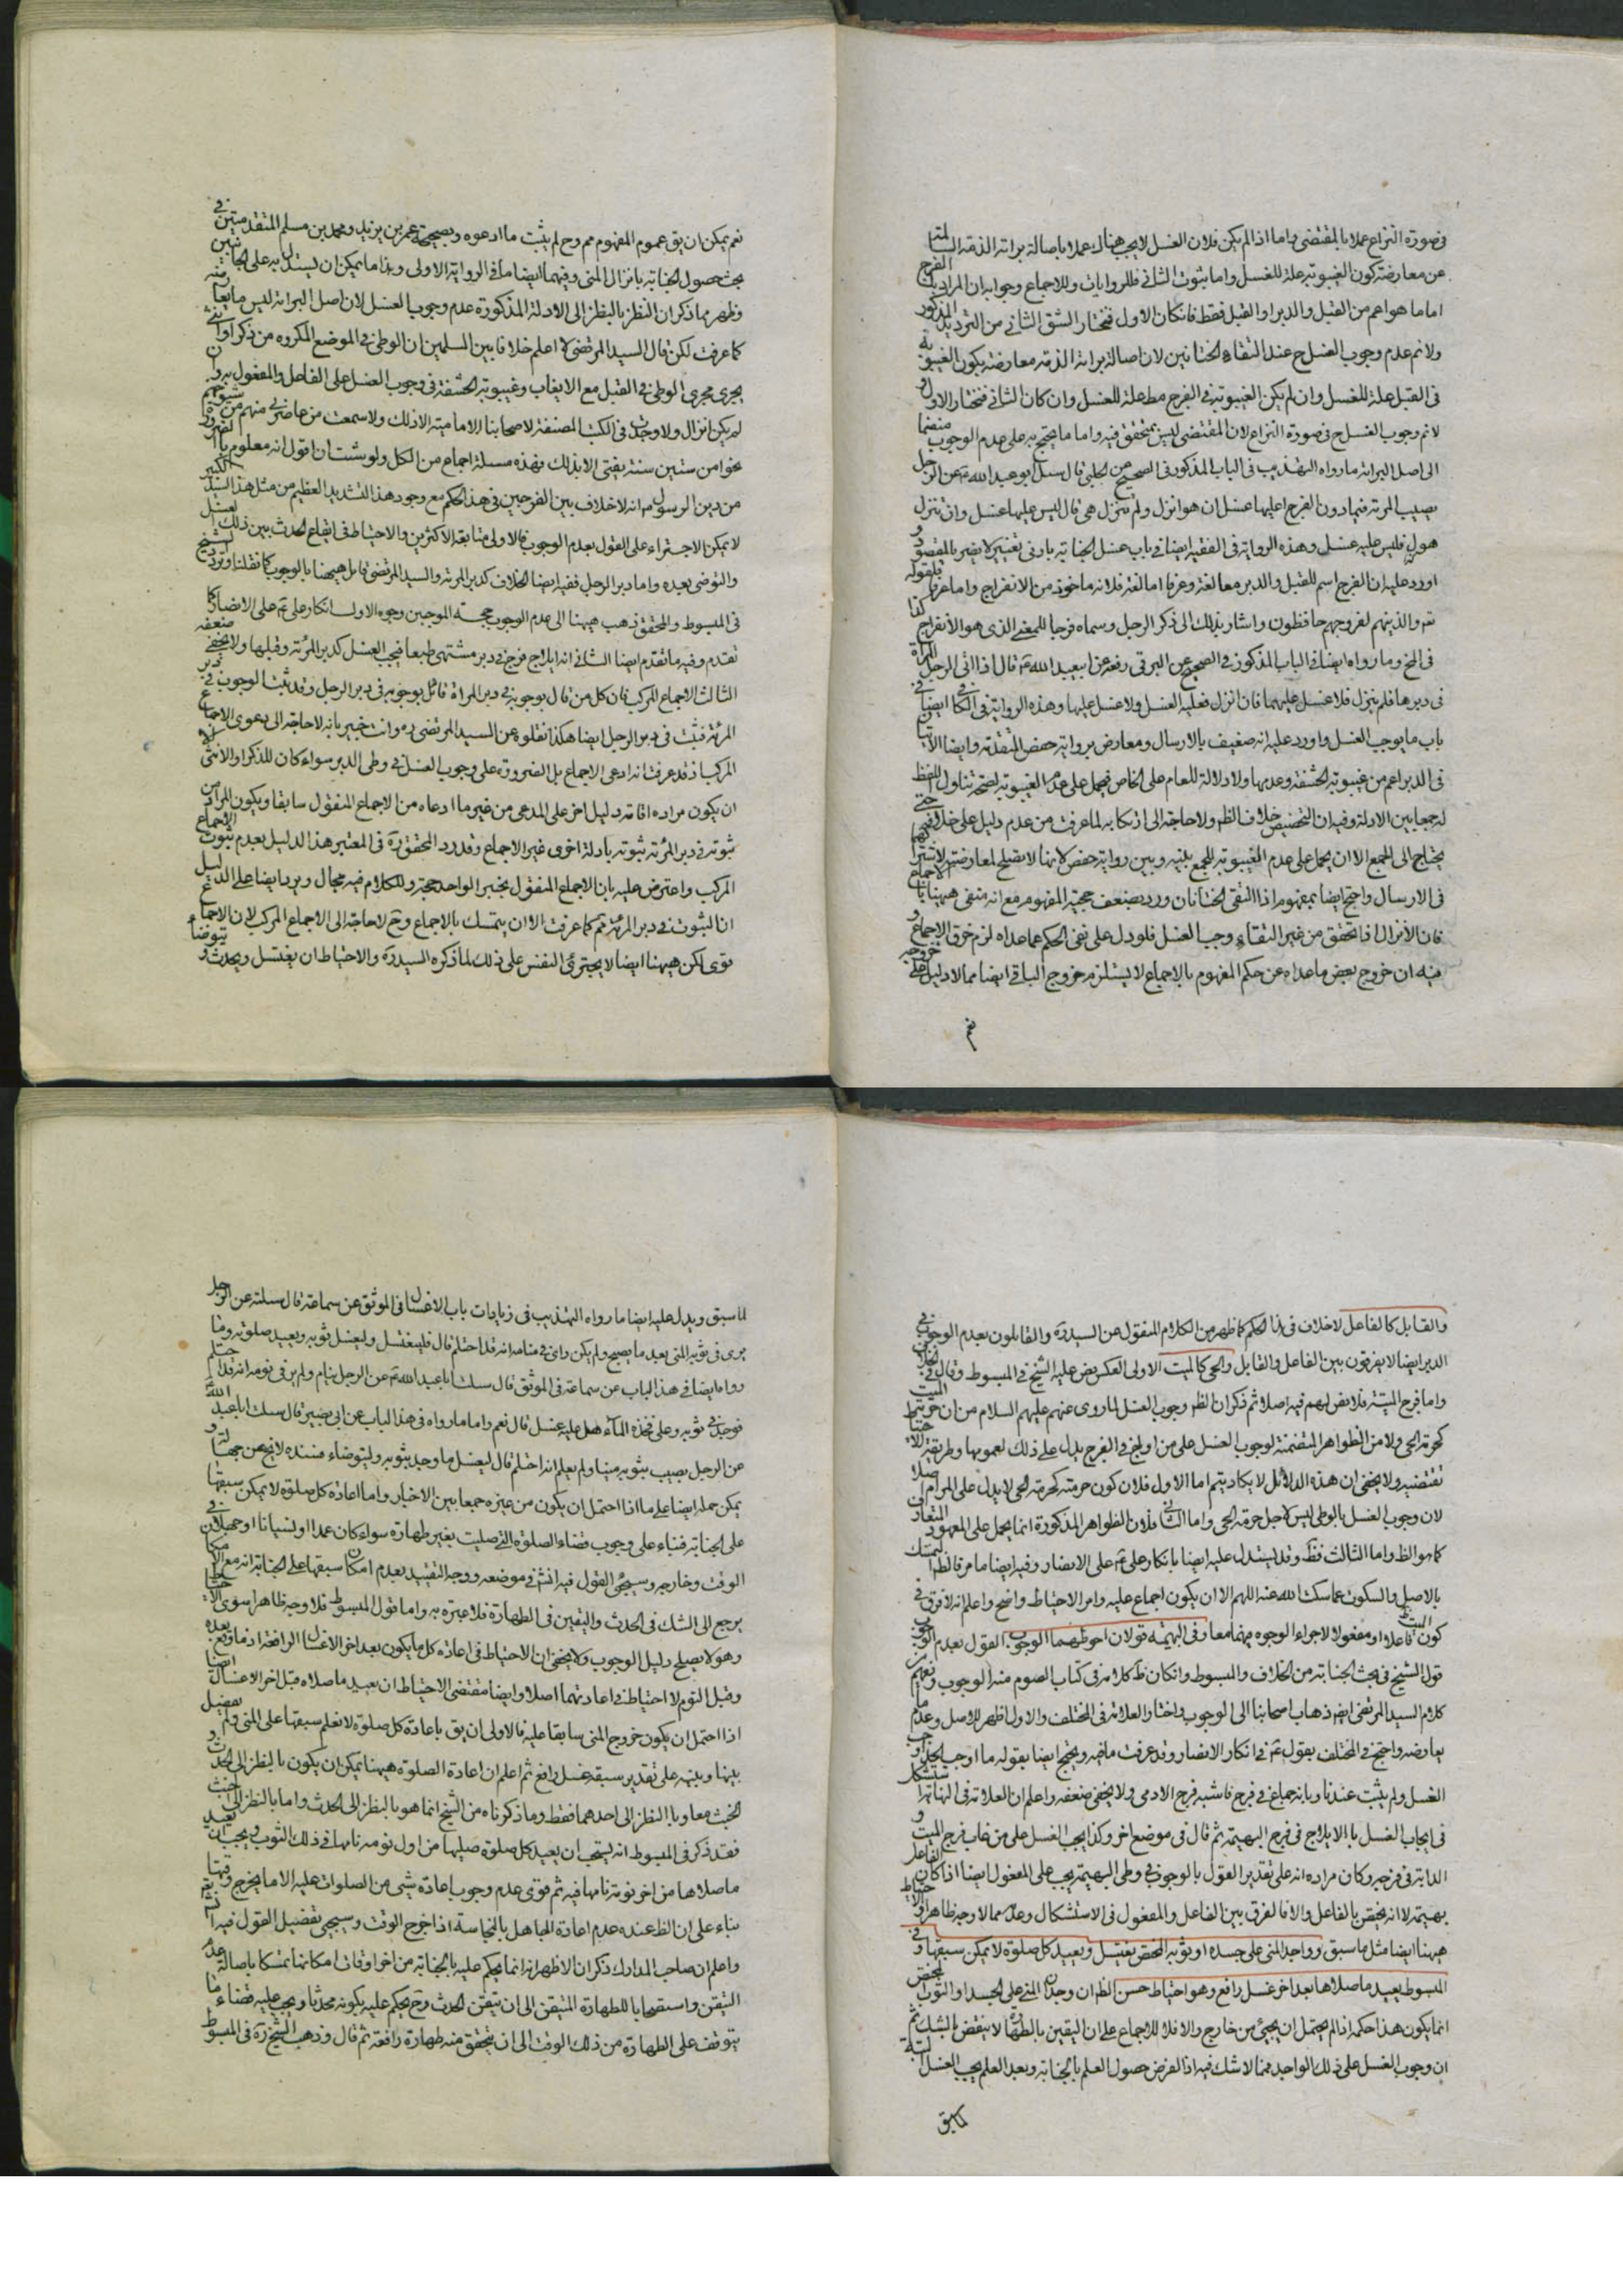 فى صورة النزاع عملا بالمقتضى واما اذا لم يكن فلان الغسل لا يجب هناك عملا باصالة برائة الذمة السالمة
عن معارضة كون الغيبوبة علة للغسل واما بثبوت الثانى فللروايات وللاجماع وجوابه ان المراد بالفرج
اما ما هو اعم من القبل والدبر او القبل فقط فان كان الاول فنختار الشق الثانى من الترديد المذكور
ولا نم عدم وجوب الغسل ح عند التقاء الختانين لان اصالة برائة الذمة معارضة بكون الغيبوبة
فى القبل علة للغسل وان لم يكن الغيبوبة فى الفرج مط علة للغسل وان كان الثانى فنختار الاول و
لا نم وجوب الغسل ح فى صورة النزاع لان المقتضى ليس بمتحقق فيه واما ما يحتج به على عدم الوجوب منضما
الى اصل البرائة ما رواه التهذيب فى الباب المذكور فى الصحيح عن الحلبى قال سئل ابو عبد الله ع عن الرجل
يصيب المرئة فيما دون الفرج اعليها غسل ان هو انزل ولم تنزل هى قال ليس عليها غسل وان لم ينزل
هو فليس عليه غسل وهذه الرواية فى الفقيه ايضا فى باب غسل الجنابة بادنى تغيير لا يضر بالمقصود و
اورد عليه ان الفرج اسم للقبل والدبر معا لغة وعرفا اما لغة فلانه ماخوذ من الانفراج واما عرفا فلقوله
تع والذينهم لفروجهم حافظون واشار بذلك الى ذكر الرجل وسماه فرجا للمعنى الذى هو الانفراج كذا
فى المخ وما رواه ايضا فى الباب المذكور فى الصحيح عن البرقى رفعه عن ابيعبد الله ع قال اذا اتى الرجل المراة
فى دبرها فلم ينزل فلا غسل عليهما فان انزل فعليه الغسل ولا غسل عليها وهذه الرواية فى الكا ايضا فى
باب ما يوجب الغسل واورد عليه انه ضعيف بالارسال ومعارض برواية حفص المتقدمة وايضا الاتيان
فى الدبر اعم من غيبوبة الحشفة وعدمها ولا دلالة للعام على الخاص فيحمل على عدم الغيبوبة لصحة تناول اللفظ
له جمعا بين الادلة وفيه ان التخصيص خلاف الظ ولا حاجة الى ارتكابه لما عرفت من عدم دليل على خلافه حتى
يحتاج الى الجمع الا ان يحمل على عدم الغيبوبة للجمع بينه وبين رواية حفص لانها لا يصلح لمعارضته لاشتراكهما
فى الارسال واحتج ايضا بمفهوم اذا التقى الختانان ورد بضعف حجية المفهوم مع انه منفى هيهنا بالاجماع
فان الانزال اذا تحقق من غير التقاء وجب الغسل فلو دل على نفى الحكم عما عداه لزم خرق الاجماع و
فيه ان خروج بعض ما عداه عن حكم المفهوم بالاجماع لا يستلزم خروج الباقى ايضا مما لا دليل على خروجه
نعم
نعم يمكن ان يق عموم المفهوم مم وح لم يثبت ما ادعوه وبصحيحة عمر بن يزيد ومحمد بن مسلم المتقدمتين فى
بحث حصول الجنابة بانزال المنى وفيهما ايضا ما فى الرواية الاولى وهذا ما يمكن ان يستدل به على الجانبين
وظهر بما ذكر ان النظر بالنظر الى الادلة المذكورة عدم وجوب الغسل لان اصل البرائة ليس ما يعارضه
كما عرفت لكن قال السيد المرتضى لا اعلم خلافا بين المسلمين ان الوطى فى الموضع المكروه من ذكر او انثى
يجرى مجرى الوطى فى القبل مع الايقاب وغيبوبة الحشفة فى وجوب الغسل على الفاعل والمفعول به وان
لم يكن انزال ولا وجدت فى الكتب المصنفة لاصحابنا الامامية الا ذلك ولا سمعت من عاصرنى منهم من شيوخهم
نحوا من ستين سنة يفتى الا بذلك فهذه مسئلة اجماع من الكل ولو شئت ان اقول انه معلوم بالضرورة
من دين الرسول ص انه لا خلاف بين الفرجين فى هذا الحكم مع وجود هذا التشديد العظيم من مثل هذا السيد الكبير
لا يمكن الاجتراء على القول بعدم الوجوب فالاولى متابعة الاكثرين والاحتياط فى ايقاع الحدث بين ذلك الغسل
والتوضى بعيده واما دبر الرجل ففيه ايضا الخلاف كدبر المرئة والسيد المرتضى قائل هيهنا بالوجوب كما نقلنا وتردد الشيخ
فى المبسوط والمحقق ذهب هيهنا الى عدم الوجوب حجة الموجبين وجوه الاول انكار على ع على الانصار كما
تقدم وفيه ما تقدم ايضا الثانى انه ايلاج فرج فى دبر مشتهى طبعا فيجب الغسل كدبر المرئة وقبلها ولا يخفى ضعفه
الثالث الاجماع المركب فان كل من قال بوجوبه فى دبر المراة قائل بوجوبه فى دبر الرجل وقد ثبت الوجوب فى دبر
المرئة فثبت فى دبر الرجل ايضا هكذا نقلوه عن السيد المرتضى ره وانت خبير بانه لا حاجة الى دعوى الاجماع
المركب اذ قد عرفت انه ادعى الاجماع بل الضرورة على وجوب الغسل فى وطى الدبر سواء كان للذكر او الانثى الا
ان يكون مراده اقامة دليل اخر على المدعى من غير ما ادعاه من الاجماع المنقول سابقا ويكون المراد من
ثبوته فى دبر المرئة ثبوته بادلة اخرى غير الاجماع وقد رد المحقق ره فى المعتبر هذا الدليل بعدم ثبوت الاجماع
المركب واعترض عليه بان الاجماع المنقول بخبر الواحد حجة وللكلام فيه مجال ويرد ايضا على الدليل
ان الثبوت فى دبر المرئة مم كما عرفت الا ان يتمسك بالاجماع وح لا حاجة الى الاجماع المركب لان الاجماع
قوى لكن هيهنا ايضا لا يجترئ النفس على ذلك لما ذكره السيد ره والاحتياط ان يغتسل ويحدث ويتوضأ
والقابل كالفاعل لا خلاف فى هذا الحكم كما ظهر من الكلام المنقول عن السيد ره والقائلون بعدم الوجوب فى
الدبر ايضا لا يفرقون بين الفاعل والقابل والحى كالميت الاولى العكس نص عليه الشيخ فى المبسوط وقال فى الخلاف
واما فرج الميتة فلا نص لهم فيه اصلا ثم ذكر ان الظ وجوب الغسل لما روى عنهم عليهم السلام من ان حرمة الميت
كحرمة الحى ولا من الظواهر المتضمنة لوجوب الغسل على من اولج فى الفرج يدل على ذلك لعمومها وطريقة الاحتياط
تقتضيه ولا يخفى ان هذه الدلائل لا يكاد يتم اما الاول فلان كون حرمته كحرمة الحى لا يدل على المرام اصلا
لان وجوب الغسل بالوطى ليس لاجل حرمة الحى واما الثانى فلان الظواهر المذكورة انما يحمل على المعهود المتعارف
كما هو الظ واما الثالث فظ وقد يستدل عليه ايضا بانكار على ع على الانصار وفيه ايضا ما مر فالظ التمسك
بالاصل والسكوت عما سكت الله عنه اللهم الا ان يكون اجماع عليه وامر الاحتياط واضح واعلم انه لا فرق فى
كون الميت فاعلا او مفعولا لاجراء الوجوه فيهما معا وفى البهيمة قولان احوطهما الوجوب القول بعدم الوجوب
قول الشيخ فى بحث الجنابة من الخلاف والمبسوط وان كان ظ كلامه فى كتاب الصوم منه الوجوب ونعم من
كلام السيد المرتضى ايض ذهاب اصحابنا الى الوجوب واختار العلامة فى المختلف والاول اظهر للاصل وعدم ما
يعارضه واحتج فى المختلف بقول ع فى انكار الانصار وقد عرفت ما فيه ويحتج ايضا بقوله ما اوجب الحد اوجب
الغسل ولم يثبت عندنا وبانه جماع فى فرج فاشبه فرج الادمى ولا يخفى ضعفه واعلم ان العلامة فى النهاية استشكل
فى ايجاب الغسل بالايلاج فى فرج البهيمة ثم قال فى موضع اخر وكذا يجب الغسل على من غاب فرج الميت و
الدابة فى فرجه وكان مراده انه على تقدير القول بالوجوب فى وطى البهيمة يجب على المفعول ايضا اذا كان الفاعل
بهيمة لا انه يختص بالفاعل والا فالفرق بين الفاعل والمفعول فى الاستشكال وعدمه مما لا وجه ظاهرا والاحتياط
هيهنا ايضا مثل ما سبق وواجد المنى على جسده او ثوبه المختص يغتسل ويعيد كل صلوة لا يمكن سبقها وفى
المبسوط يعيد ما صلاها بعد اخر غسل رافع وهو احتياط حسن الظ ان وجدان المنى على الجسد او الثوب المختص
انما يكون هذا حكمه اذا لم يحتمل ان يجيئ من خارج والا فلا للاجماع على ان اليقين بالطهارة لا ينقض بالشك ثم
ان وجوب الغسل على ذلك الواجد مما لا شك فيه اذا الفرض حصول العلم بالجنابة وبعد العلم يجب الغسل البتة
لما سبق
لما سبق ويدل عليه ايضا ما رواه التهذيب فى زيادات باب الاغسال فى الموثق عن سماعة قال سئلته عن الرجل
يرى فى ثوبه المنى بعد ما يصبح ولم يكن راى فى منامه انه قد احتلم قال فليغتسل وليغسل ثوبه ويعيد صلوته وما
رواه ايضا فى هذا الباب عن سماعة فى الموثق قال سئلت ابا عبد الله ع عن الرجل ينام ولم ير فى نومه انه قد احتلم
فوجد فى ثوبه وعلى فخذه الماء هل عليه غسل قال نعم واما ما رواه فى هذا الباب عن ابى بصير قال سئلت ابا عبد الله ع
عن الرجل يصيب بثوبه منيا ولم يعلم انه احتلم قال ليغسل ما وجد بثوبه وليتوضاء فسنده لا يخ عن جهالة و
يمكن حمله ايضا على ما اذا احتمل ان يكون من غيره جمعا بين الاخبار واما اعادة كل صلوة لا يمكن سبقها
على الجنابة فبناء على وجوب قضاء الصلوة التى صليت بغير طهارة سواء كان عمدا او نسيانا او جهلا فى
الوقت وخارجه وسيجئ القول فيه انش فى موضعه ووجه التقييد بعدم امكان سبقها على الجنابة انه مع الامكان
يرجع الى الشك فى الحدث واليقين فى الطهارة فلا عبرة به واما قول المبسوط فلا وجه ظاهرا سوى الاحتياط
وهو لا يصلح دليل الوجوب ولا يخفى ان الاحتياط فى اعادة كل ما يكون بعد اخر الاغسال الرافعة اذ ما وقع بعده
وقبل النوم لا احتياط فى اعادتهما اصلا وايضا مقتضى الاحتياط ان يعيد ما صلاه قبل اخر الاغسال ايضا
اذا احتمل ان يكون خروج المنى سابقا عليه فالاولى ان يق باعادة كل صلوة لا نعلم سبقها على المنى ولم يفصل
بينها وبينه على تقدير سبقه غسل رافع ثم اعلم ان اعادة الصلوة هيهنا يمكن ان يكون بالنظر الى الحدث و
الخبث معا وبالنظر الى احدهما فقط وما ذكرناه من الشيخ انما هو بالنظر الى الحدث واما بالنظر الى الخبث
فقد ذكر فى المبسوط انه يستحب ان يعيد كل صلوة صليها من اول نومة نامها فى ذلك الثوب ويجب ان يعيد
ما صلاها من اخر نومة نامها فيه ثم قوى عدم وجوب اعادة شئ من الصلوات عليه الا ما يخرج وقتها
بناء على ان الظ عنده عدم اعادة الجاهل بالنجاسة اذا خرج الوقت وسيجئ تفصيل القول فيه انش تع
واعلم ان صاحب المدارك ذكر ان الاظهر انه انما يحكم عليه بالجنابة من اخر اوقات امكانها تمسكا باصالة عدم
التيقن واستصحابا للطهارة المتيقن الى ان يتيقن الحدث وح يحكم عليه بكونه محدثا ويجب عليه قضاء ما
يتوقف على الطهارة من ذلك الوقت الى ان يتحقق منه طهارة رافعة ثم قال وذهب الشيخ ره فى المبسوط